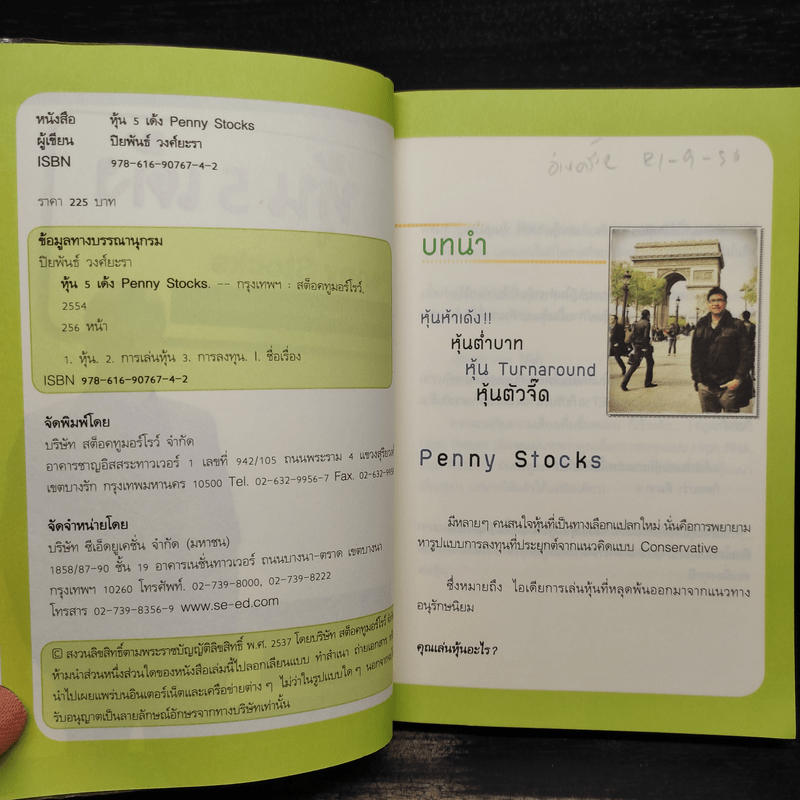 หนังสือ หุ้น 5 เด้ง Penny Stocks
ผู้เขียน ปิยพันธ์ วงศ์ยะรา
ISBN 978-616-90767-4-2
ราคา 225 บาท
ข้อมูลทางบรรณานุกรม
ปิยพันธ์ วงศ์ยะรา
หุ้น 5 เด้ง Penny Stocks. -- กรุงเทพฯ : สต็อคทูมอร์โรว์,
2554
256 หน้า
1. หุ้น. 2. การเล่นหุ้น 3. การลงทุน. I. ชื่อเรื่อง
ISBN 978-616-90767-4-2
จัดพิมพ์โดย
บริษัท สต็อคทูมอร์โรว์ จำกัด
อาคารชาญอิสสระทาวเวอร์ 1 เลขที่ 942/105 ถนนพระราม 4 แขวงสุริยวงศ์
เขตบางรัก กรุงเทพมหานคร 10500 Tel. 02-632-9956-7 Fax. 02-632-
จัดจำหน่ายโดย
บริษัท ซีเอ็ดยูเคชั่น จำกัด (มหาชน)
1858/87-90 ชั้น 19 อาคารเนชั่นทาวเวอร์ ถนนบางนา-ตราด เขตบางนา
กรุงเทพฯ 10260 โทรศัพท์. 02-739-8000, 02-739-8222
โทรสาร 02-739-8356-9 www.se-ed.com
© สงวนลิขสิทธิ์ตามพระราชบัญญัติลิขสิทธิ์ พ.ศ. 2537 โดยบริษัท สต็อคทูมอร์โรว์
ห้ามนำส่วนหนึ่งส่วนใดของหนังสือเล่มนี้ไปลอกเลียนแบบ ทำสำเนา ถ่ายเอกสาร
นำไปเผยแพร่บนอินเตอร์เน็ตและเครือข่ายต่าง ๆ ไม่ว่าในรูปแบบใด ๆ นอกจาก
รับอนุญาตเป็นลายลักษณ์อักษรจากทางบริษัทเท่านั้น
บทนำ
หุ้นห้าเด้ง!!
หุ้นต่ำบาท
หุ้น Turnaround
หุ้นตัวจี๊ด
Penny Stocks
มีหลายๆ คนสนใจหุ้นที่เป็นทางเลือกแปลกใหม่ นั่นคือการพยายาม
หารูปแบบการลงทุนที่ประยุกต์จากแนวคิดแบบ Conservative
ซึ่งหมายถึง ไอเดียการเล่นหุ้นที่หลุดพ้นออกมาจากแนวทาง
อนุรักษนิยม
คุณเล่นหุ้นอะไร?